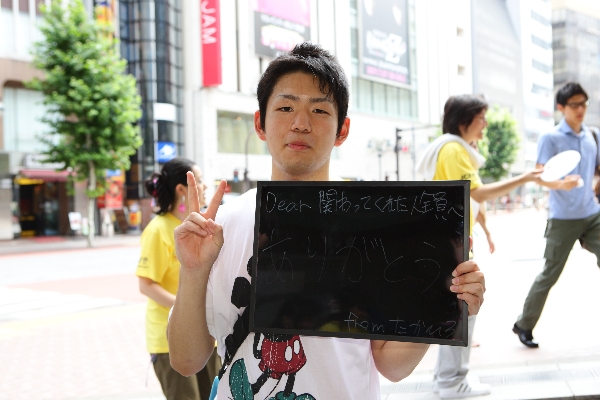 JAM
Dear 関わってくれた人全員へ
ありがとう
from たかひろ